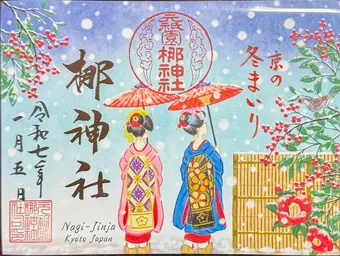 京の
冬まいり
元祇園
梛神社
梛神社
令和七年
一月五日
Nagi-Jinja
Kyoto Japan